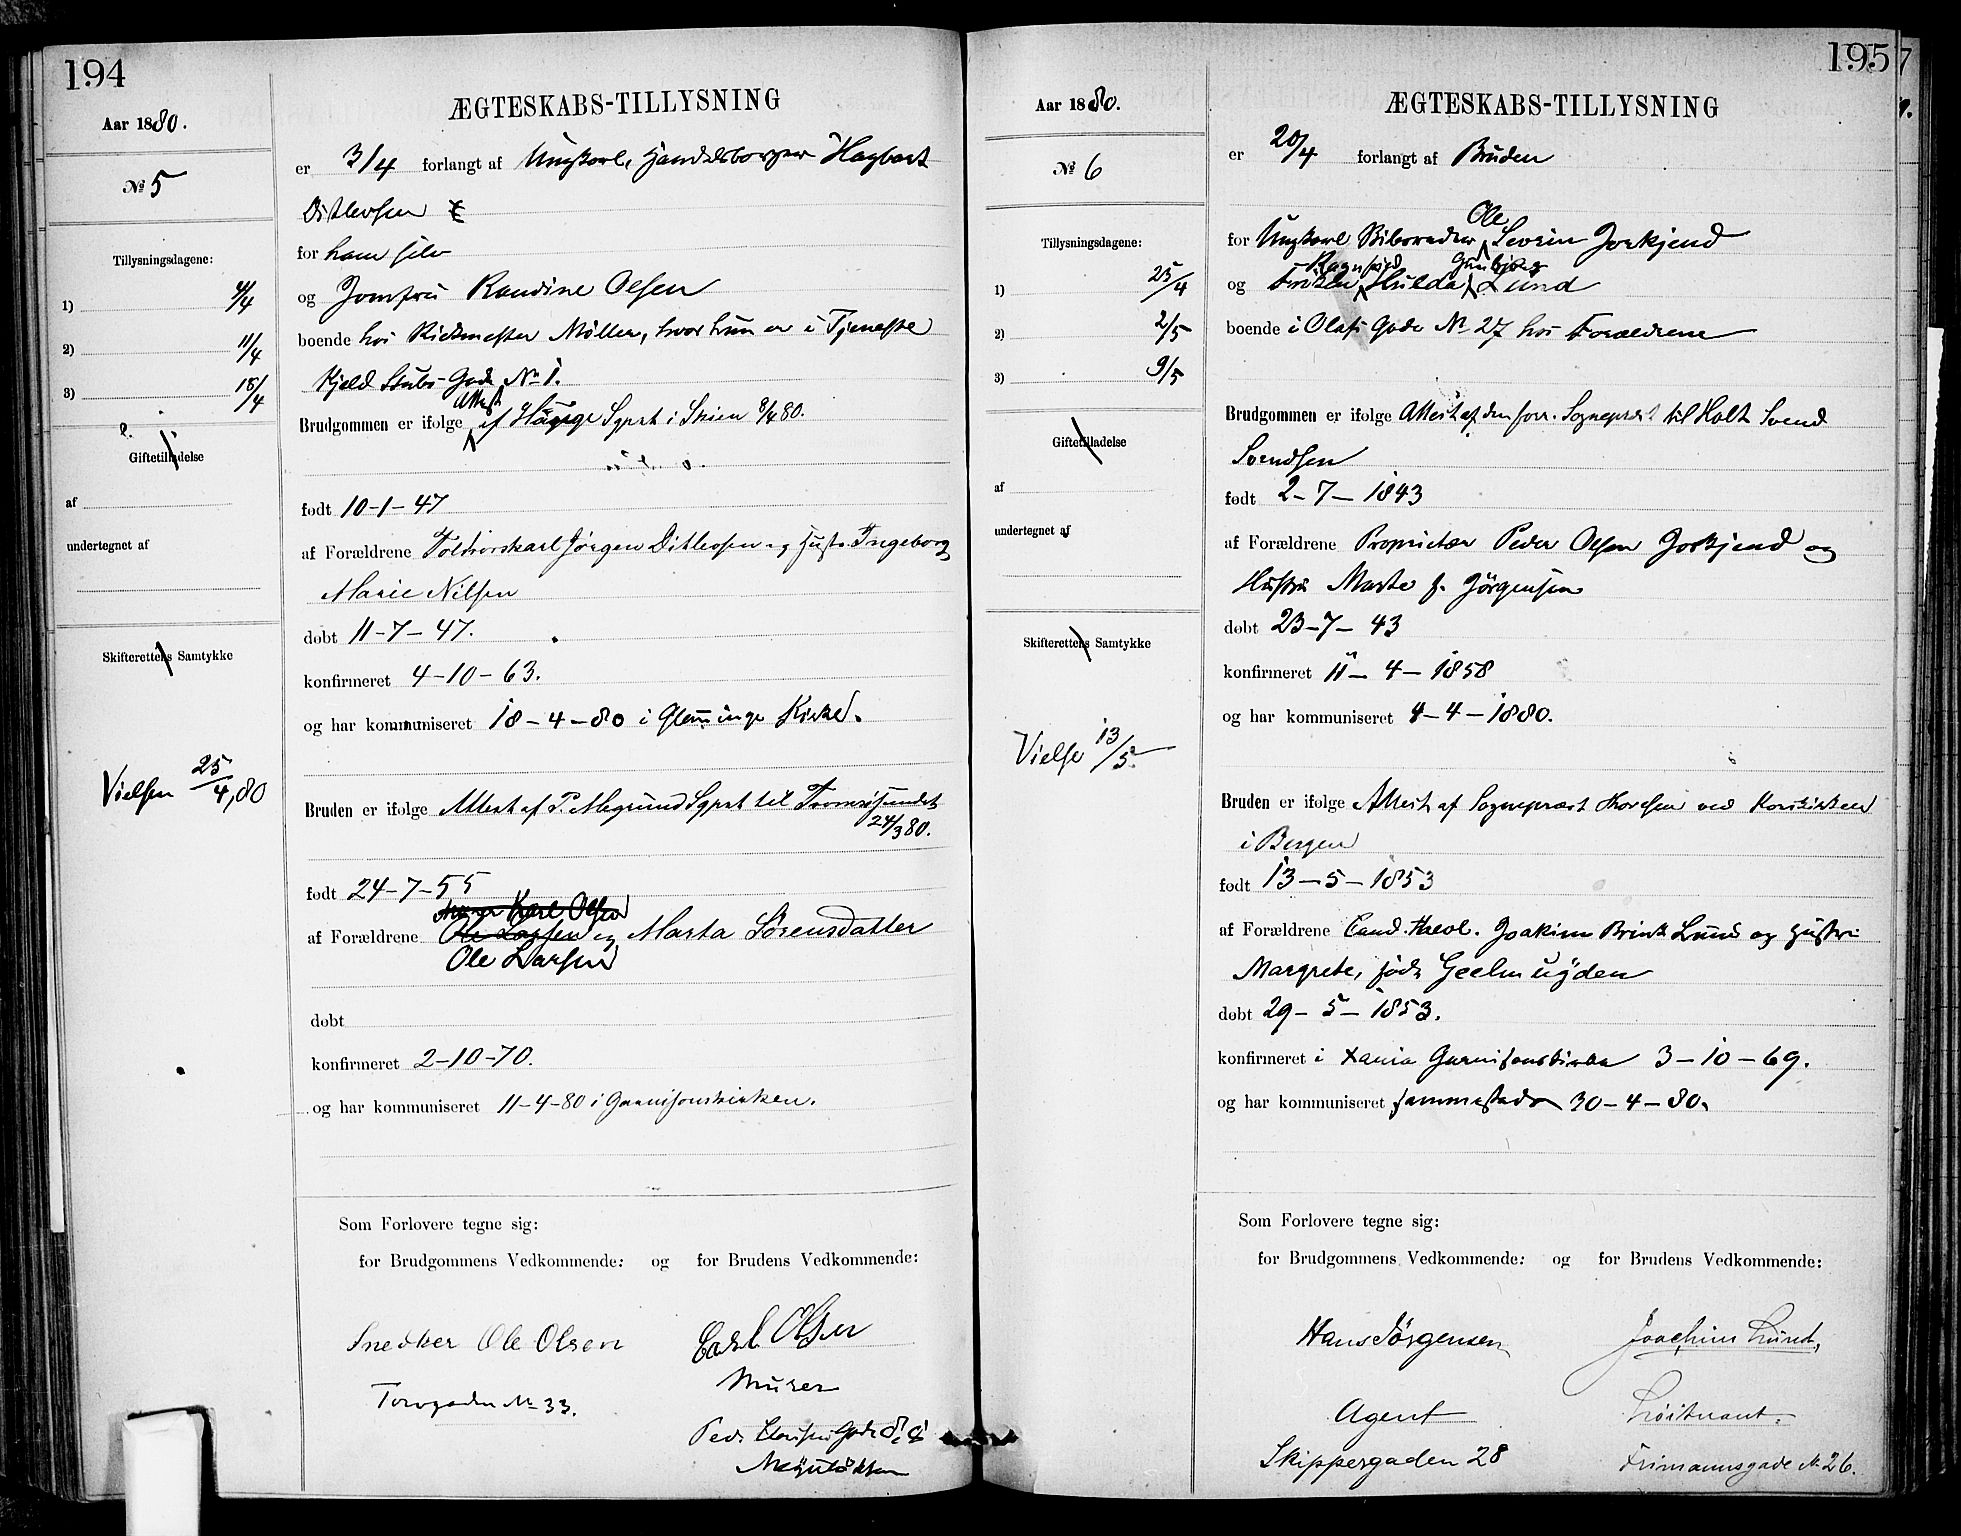 194
Aar 1880.
№ 5
Tillysningsdagene:
1) 4/4
2) 11/4
3) 18/4
Giftetilladelse
af
undertegnet af
Skifterettens Samtykke
Vielsen 25/4,80
ÆGTESKABS-TILLYSNING
er 3/4 forlangt af Ungkarl, Handelsborger Hagbart
Ditlevsen
for ham selv
og Jomfru Randine Olsen
boende hos Møller, hvor hun er i Tjeneste
Kjeld Stubs Gade No 1.
Attest
Brudgommen er ifølge af Sgprst i Skien 80.
født 10-1-47
af Forældrene Jørgen Ditlevsen og Hustr. Ingeborg
Marie Nilsen
døbt 11-7-47.
konfirmeret 4-10-63.
og har kommuniseret 18-4-80 i Glemminge Kirke.
Bruden er ifølge Attest af P. Sgprst til Tromøsundet
24/3 80.
født 24-7-55
Karl Olsen
af Forældrene Ole Larsen og Marta Sørensdatter
Ole Larsen
døbt
konfirmeret 2-10-70.
og har kommuniseret 11-4-80 i Garnisonskirken.
Som Forlovere tegne sig:
for Brudgommens Vedkommende: og for Brudens Vedkommende:
Snedker Ole Olsen
Torvgaden No 33.
Carl Olsen
Murer
195
Aar 1880.
№ 6
Tillysningsdagene:
1) 25/4
2) 2/5
3) 9/5
Giftetilladelse
af
undertegnet af
Skifterettens Samtykke
Vielse 13/5.
ÆGTESKABS-TILLYSNING
er 20/4 forlangt af Bruden
Ole
for Ungkarl Severin Joskjend
Ragnhild Gunbjørg
og Frøken Hulda Lund
boende i Olafs Gade No 27 hos Forældrene
Brudgommen er ifølge Attest af den forr. Sogneprest til Holt Svend
Svendsen
født 2-7-1843
af Forældrene Proprietær Peder Olsen Joskjend og
Hustru Marte f. Jørgensen
døbt 23-7-43
konfirmeret 11-4-1858
og har kommuniseret 4-4-1880.
Bruden er ifølge Attest af Sogneprest ved Korskirken
i Bergen
født 13-5-1853
af Forældrene Cand. theol. Joakim Brink Lund og Hustru
Margrete, født Geelmuyden
døbt 29-5-1853.
konfirmeret i Xania Garnisonskirke 3-10-69.
og har kommuniseret sammesteds 30-4-80.
Som Forlovere tegne sig:
for Brudgommens Vedkommende: og for Brudens Vedkommende:
Hans Jørgensen
Agent
Skippergaden 28
Joachim Lund,
Løitnant.
Frimannsgade No 26.